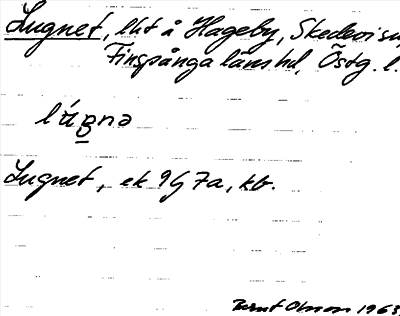 Lugnet, lht å Hageby, Skedevi sn,
Finspånga läns hd, Östg. l.
lúgnə
Lugnet, ek 9G 7a, kb.
Bernt Olsson 1963